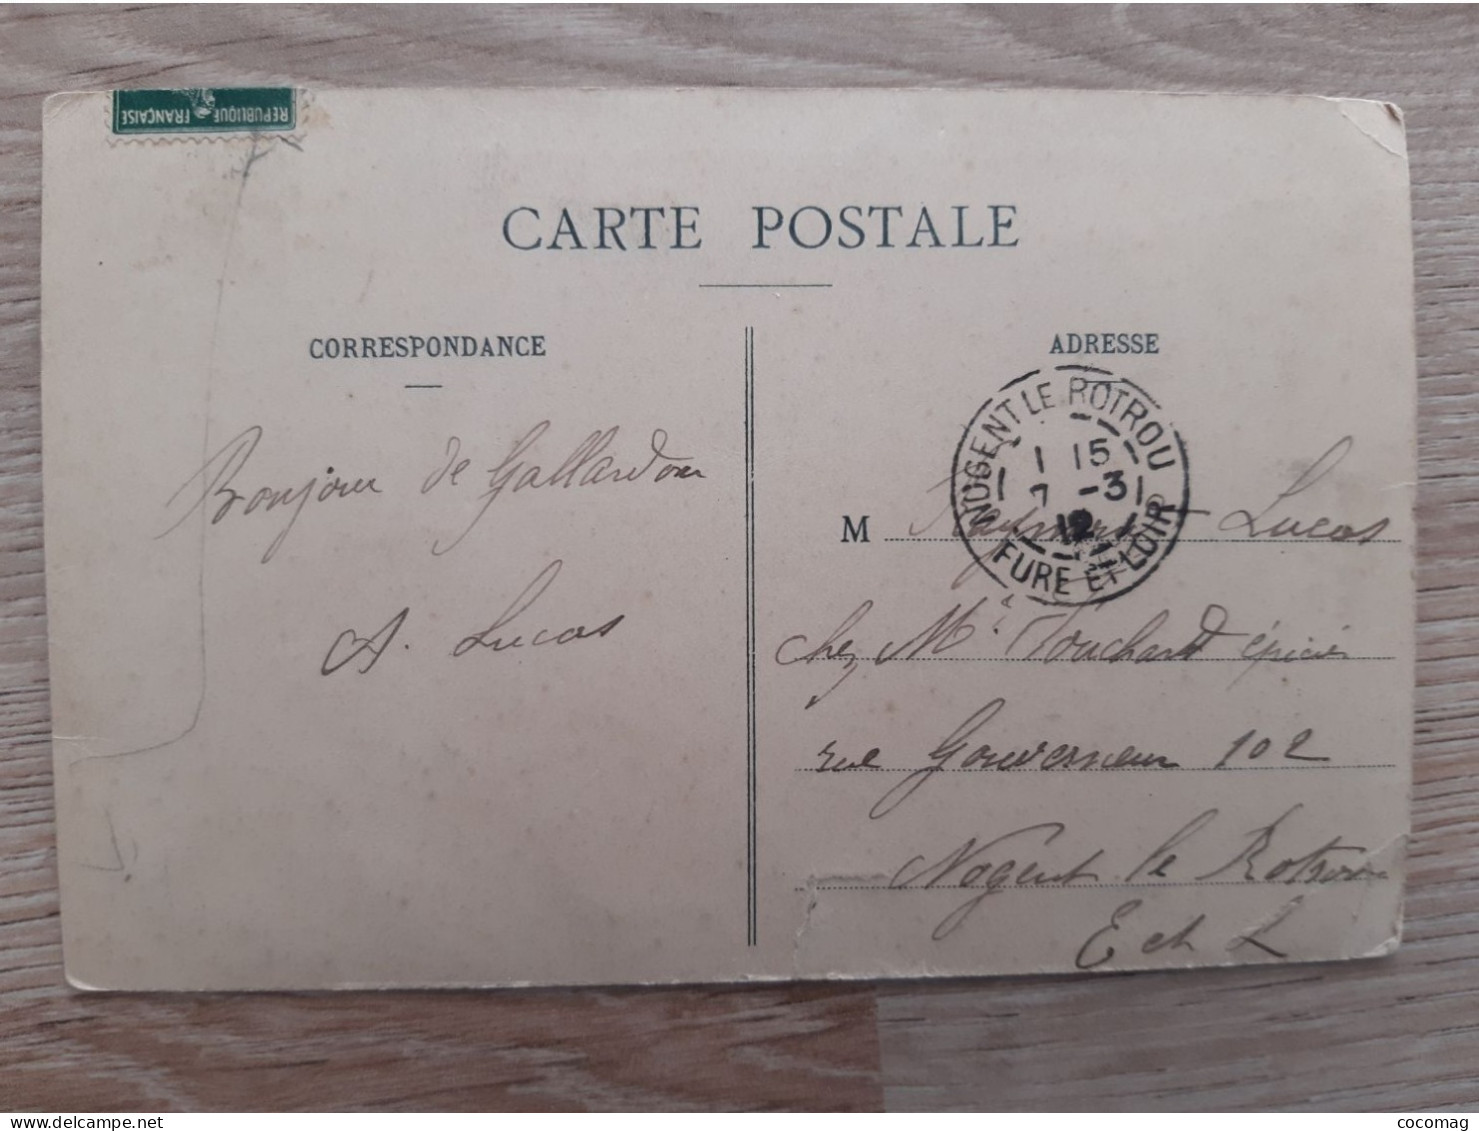 REPUBLIQUE FRANÇAISE
CARTE POSTALE
CORRESPONDANCE
ADRESSE
Bonjour de Gallardon
A. Lucas
NOGENT LE ROTROU
1 15
7 -3
12
EURE ET LOIR
M Raymond Lucas
chez Mr Touchard épicier
rue Gouverneur 102
Nogent le Rotrou
E et L
cocomag